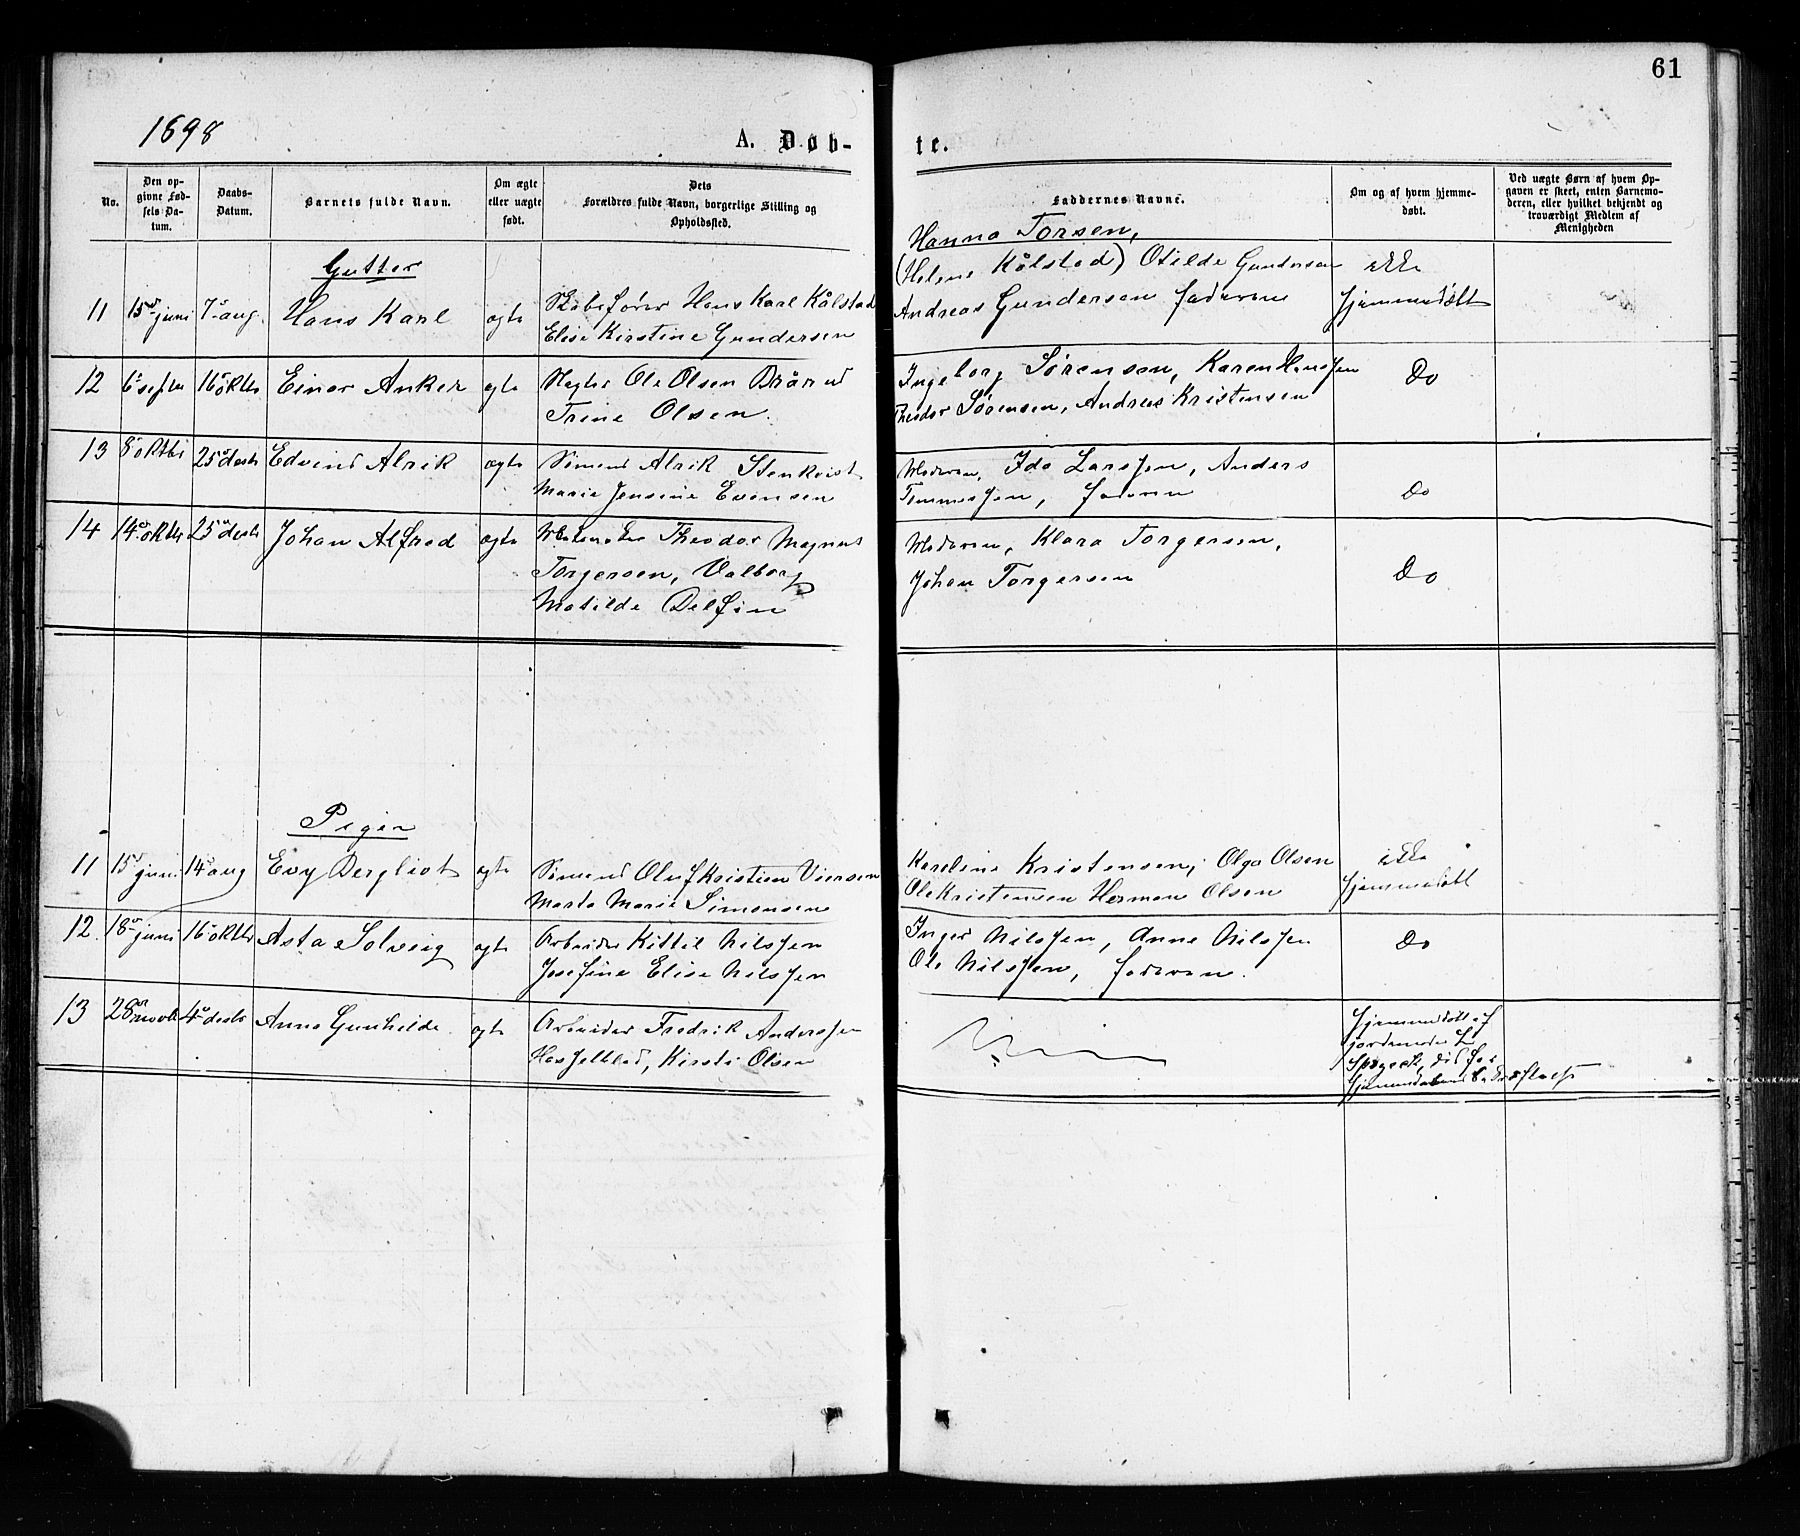 61
1898
A. Døb-
te.
No.
Den op-
givne Fød-
sels Da-
tum.
Daabs-
Datum.
Barnets fulde Navn.
Om ægte
eller uægte
født.
Dets
Forældres fulde Navn, borgerlige Stilling og
Opholdssted.
Faddernes Navne.
Om og af hvem hjemme-
døbt.
Ved uægte Børn af hvem Op-
gaven er skeet, enten Barnemo-
deren, eller hvilket bekjendt og
troværdigt Medlem af
Menigheden
Gutter
11 15 juni 7 aug. Hans Karl ægte Skibsfører Hans Karl Kålstad
Elise Kirstine Gundersen
Hanna Torsen,
(Helene Kålstad) Otilde Gundersen
Andreas Gundersen faderen
ikke
hjemmedøbt
12 6 septbr 16 oktbr Einar Anker ægte Ole Olsen
Trine Olsen.
Ingeborg Sørensen, Karen Hanssen
Theodor Sørensen, Andreas Kristensen
Do
13 8 oktbr 25 desbr Edvind Alrik ægte Sømand Alrik Stenkvist
Marie Jensine Evensen
Moderen, Ida Larssen, Anders
Tommessen, faderen
Do
14 14 oktbr 25 desbr Johan Alfred ægte Theodor Magnus
Torgersen, Valborg
Matilde Delfin
Moderen, Klara Torgersen,
Johan Torgersen
Do
Piger
11 15 juni 14 aug Evy Bergliot ægte Sømand Oluf Kristian
Marta Marie Simonsen
Kareline Kristensen, Olga Olsen
Ole Kristensen Herman Olsen
ikke
hjemmedøbt
12. 18 juni 16 oktbr Asta Solveig ægte Arbeider Kittil Nilssen
Josefine Elise Nilssen
Inger Nilssen, Anne Nilssen
Ole Nilssen, faderen.
Do
13 28 novbr 4 desbr Anna Gunhilde ægte Arbeider Fredrik Anderssen
Hasselblad, Kirsti Olsen
Hjemmedøbt af
jordemoder L